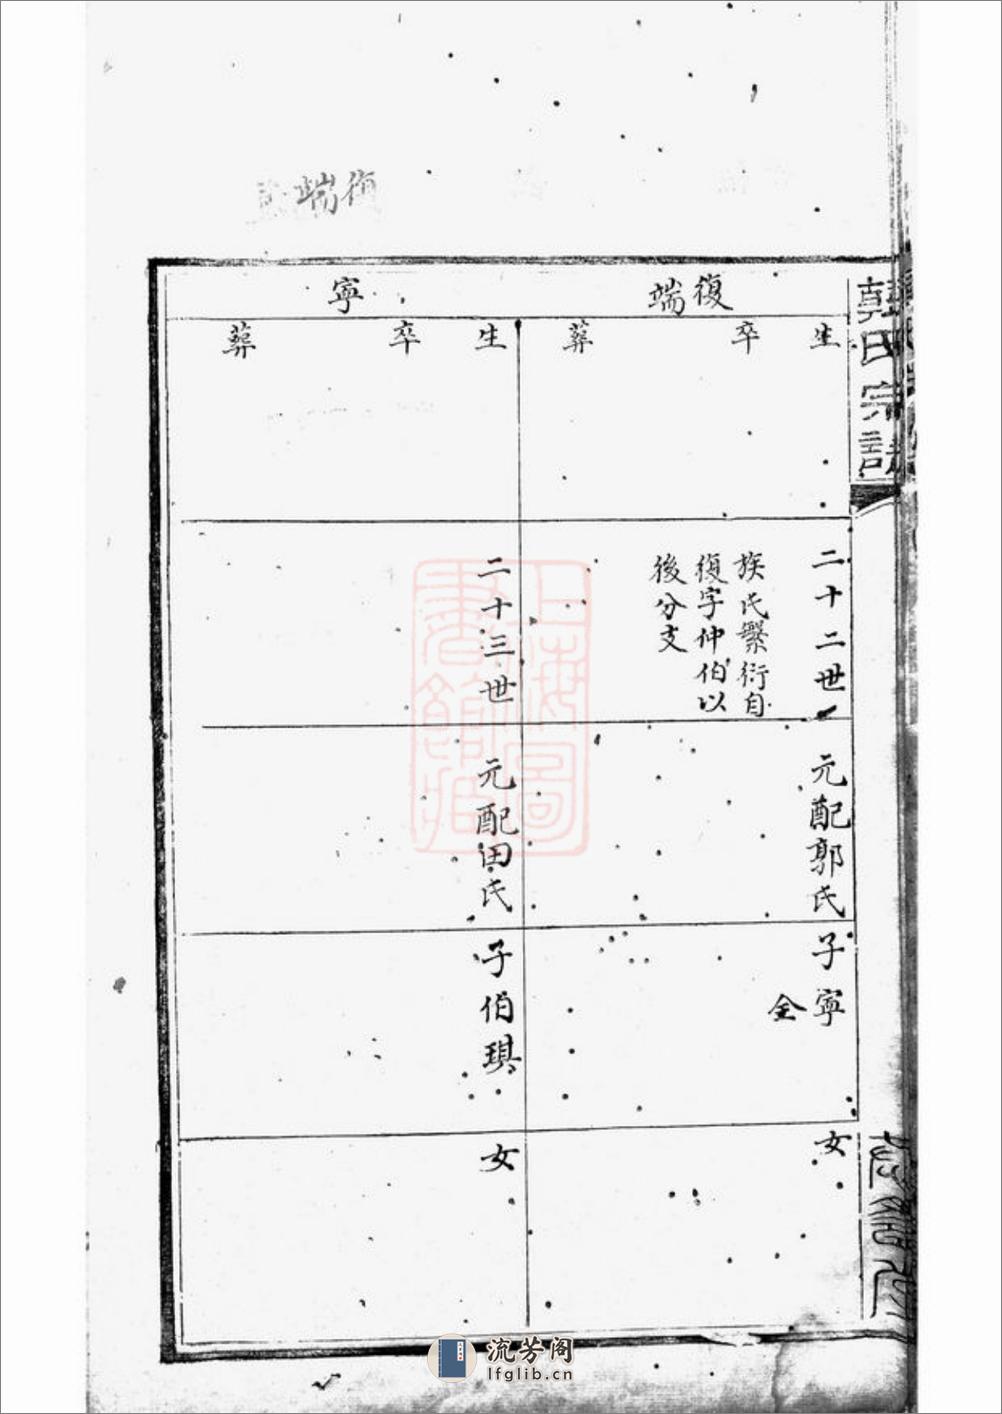 端復
韓氏宗譜
復端
生
卒
葬
二十二世
族氏繁衍自
復字仲伯以
後分支
元配郭氏
子寧
全
女
寧
生
卒
葬
二十三世
元配田氏
子伯琪
女
上海圖
書館藏
流芳阁
lfglib.cn